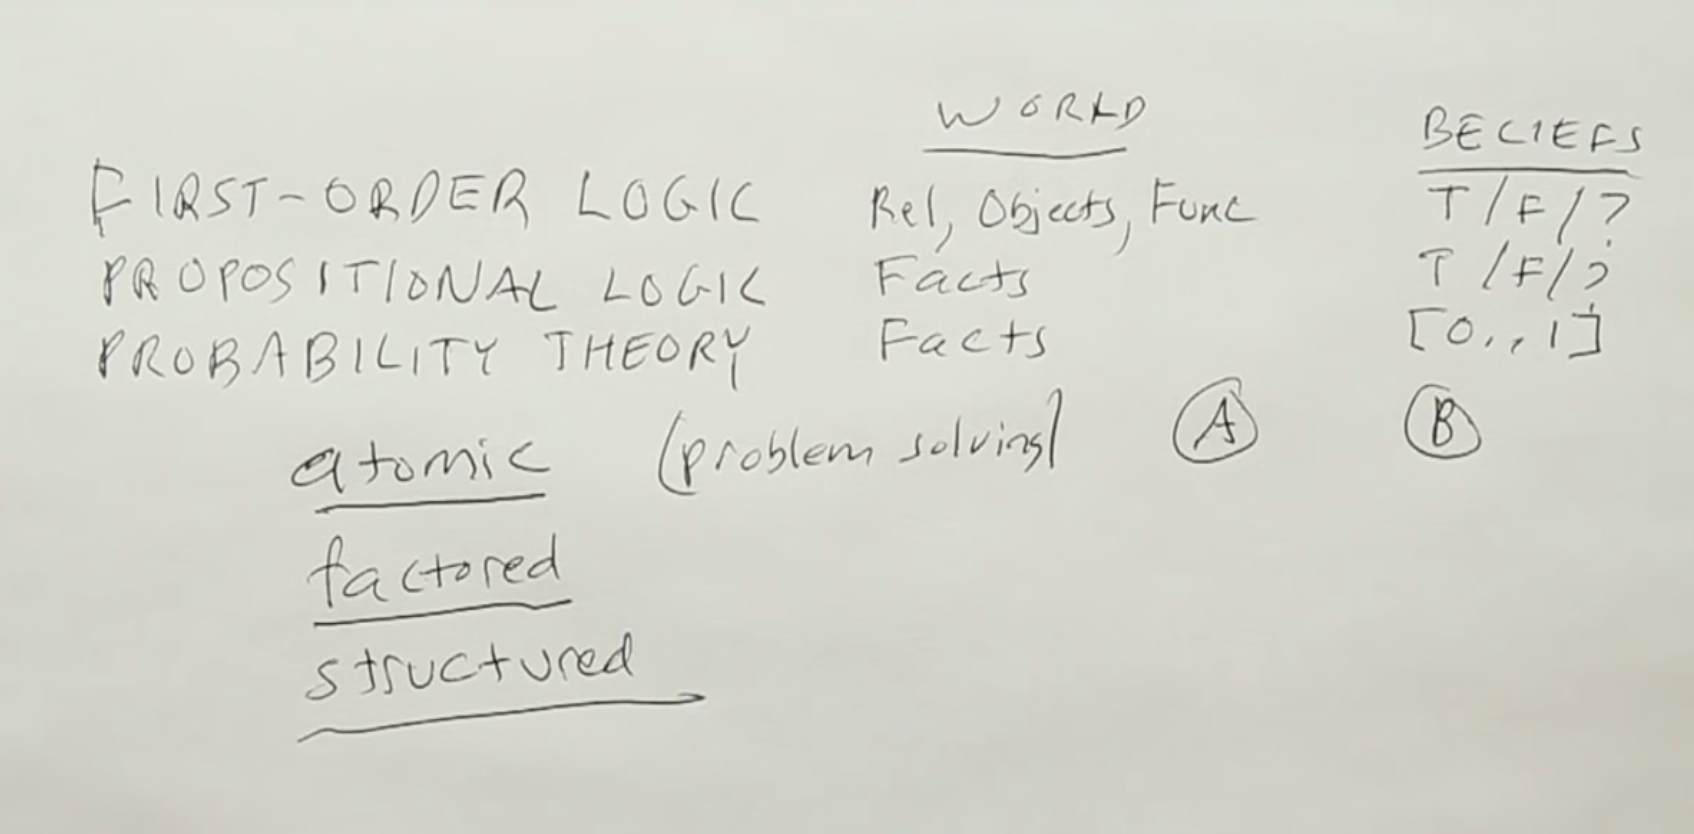 WORLD BELIEFS
FIRST-ORDER LOGIC Rel, Objects, Func T/F/?
PROPOSITIONAL LOGIC Facts T/F/?
PROBABILITY THEORY Facts [0..1]
atomic (problem solving) A B
factored
structured